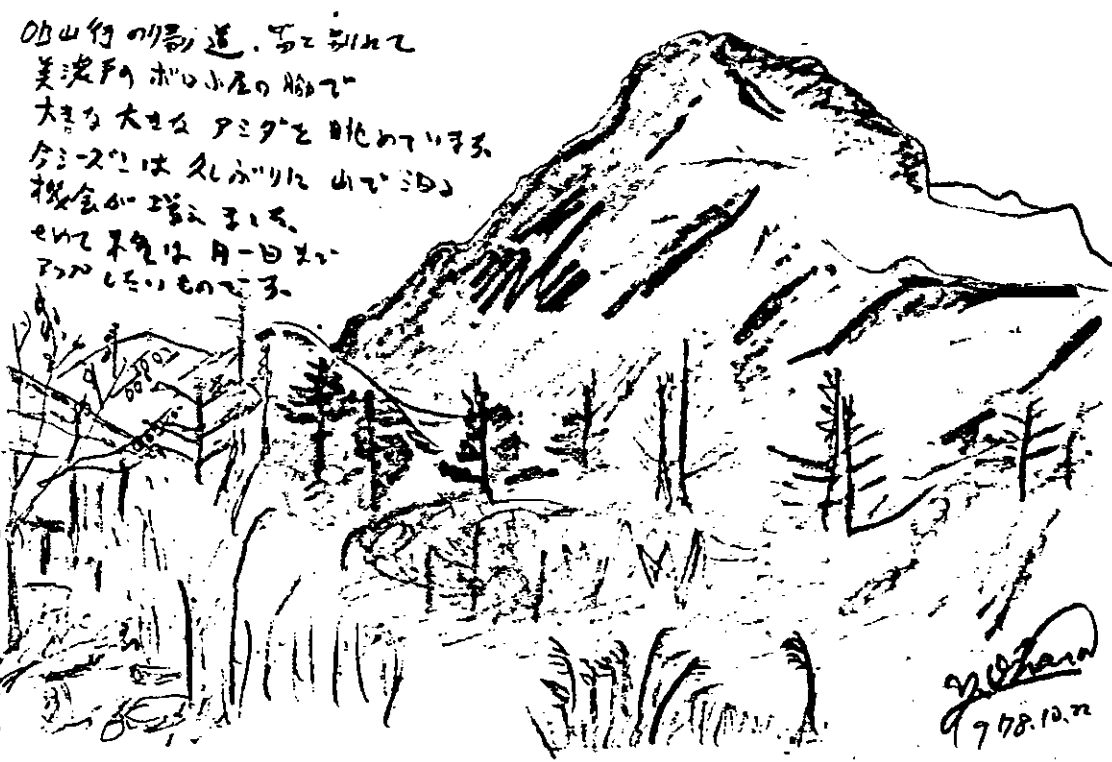 OB山行の帰り道、皆と別れて
美濃戸のボロ小屋の脇で
大きな大きなアミダを眺めています。
今シーズンは久しぶりに山で泊る
機会が増えました。
せいて来年は月一回まで
アップしたいものです。
Y. Ohara
1978.10.22